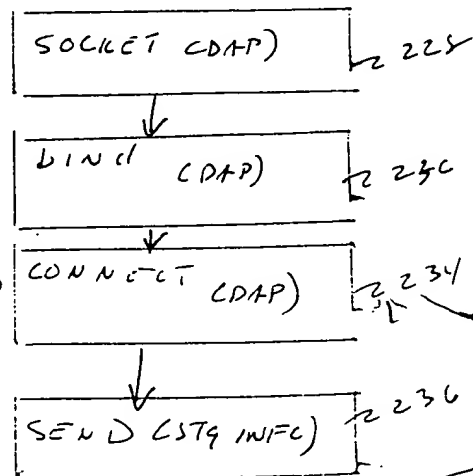 SOCKET (DAP)
228
BIND (DAP)
230
CONNECT (DAP)
234
SEND (STG INFO)
236